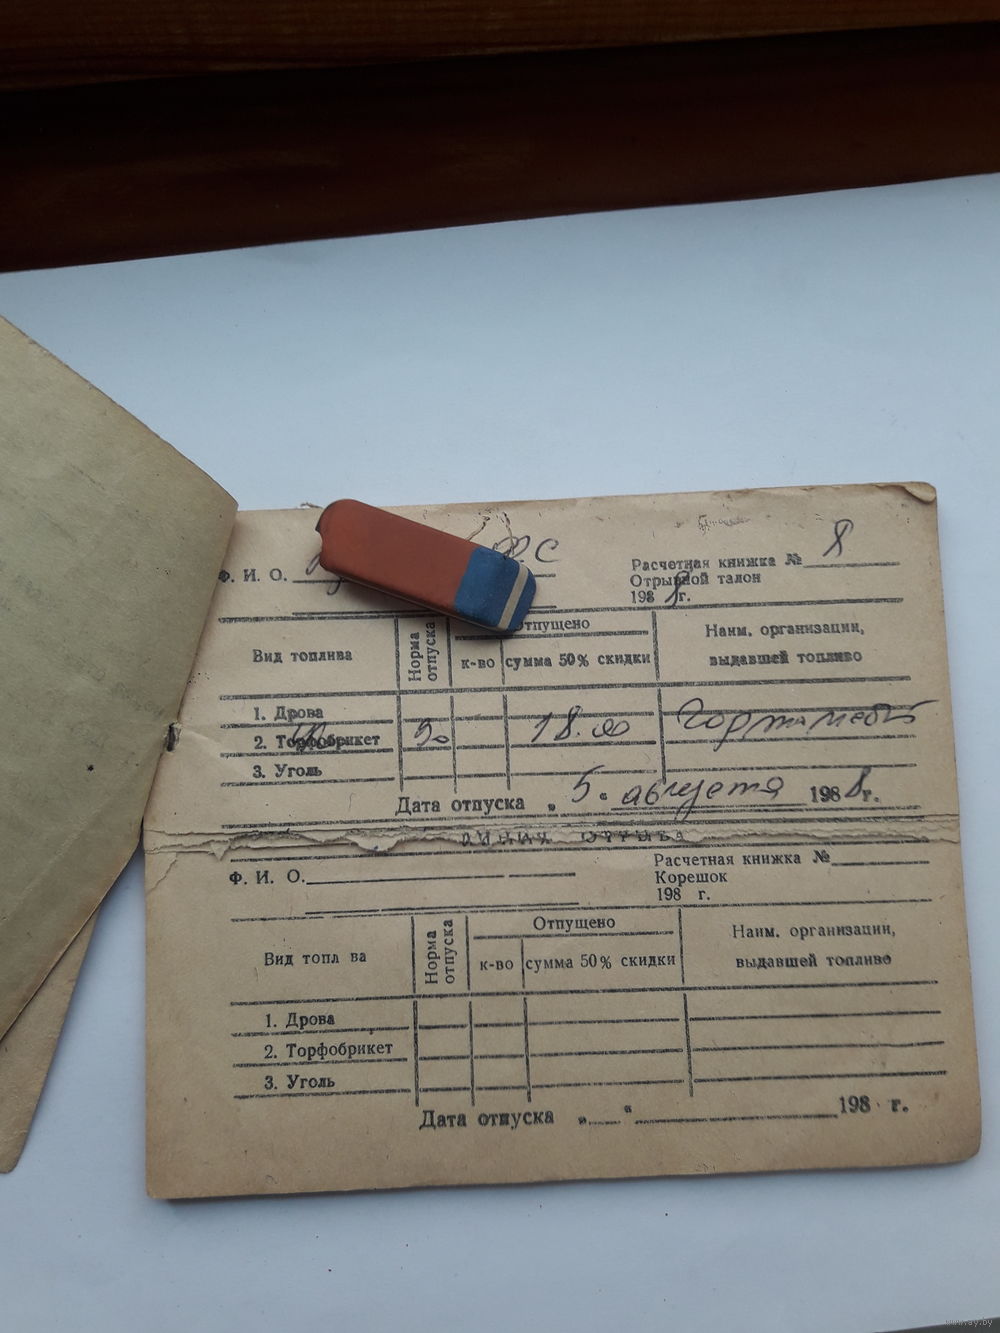 Ф. И. О. Ф.С
Расчетная книжка № 8
Отрывной талон
198 8 г.
Вид топлива
Норма отпуска
Отпущено
к-во
сумма 50% скидки
Наим. организации,
выдавшей топливо
1. Дрова
2. Торфобрикет 18.00
3. Уголь
Дата отпуска „ 5 “ августа 198 8 г.
ЛИНИЯ ОТРЫВА
Расчетная книжка №
Ф. И. О.
Корешок
198 г.
Вид топл ва
Норма отпуска
Отпущено
к-во
сумма 50% скидки
Наим. организации,
выдавшей топливо
1. Дрова
2. Торфобрикет
3. Уголь
Дата отпуска „ “ 198 г.